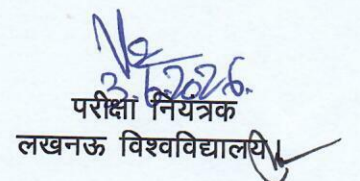 3.6.2026.
परीक्षा नियंत्रक
लखनऊ विश्वविद्यालय